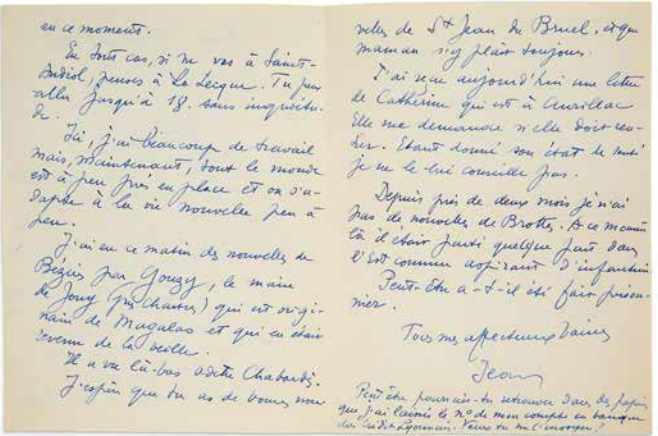 en ce moment.
En tout cas, si tu vas à Saint-
Andiol, penses à La Leique. Tu peux
aller jusqu'à 18. sans inquiétu-
de.
Ici, j'ai beaucoup de travail
mais, maintenant, tout le monde
est à peu près en place et on s'a-
dapte à la vie nouvelle peu à
peu.
J'ai eu ce matin des nouvelles de
Béziers par Gouzy, le maire
de Jouy (près Chartres) qui est origi-
naire de Magalas et qui en était
revenu de la veille.
Il a vu là-bas Chabardès.
J'espère que tu as de bonnes nou
velles de St Jean du Bruel, et que
maman s'y plaît toujours.
J'ai reçu aujourd'hui une lettre
de Catherine qui est à Aurillac
Elle me demande si elle doit ren-
trer. Etant donné son état de santé
je ne le lui conseille pas.
Depuis près de deux mois je n'ai
pas de nouvelles de Brottes. A ce moment
là il était parti quelque part dans
l'Est comme aspirant d'infanterie
Peut-être a-t-il été fait prison-
nier.
Tous mes affectueux baisers
Jean
Peut être pourrais-tu retrouver dans des papiers
que j'ai laissés le n° de mon compte en banque
du Crédit Lyonnais. Veux tu me l'envoyer?